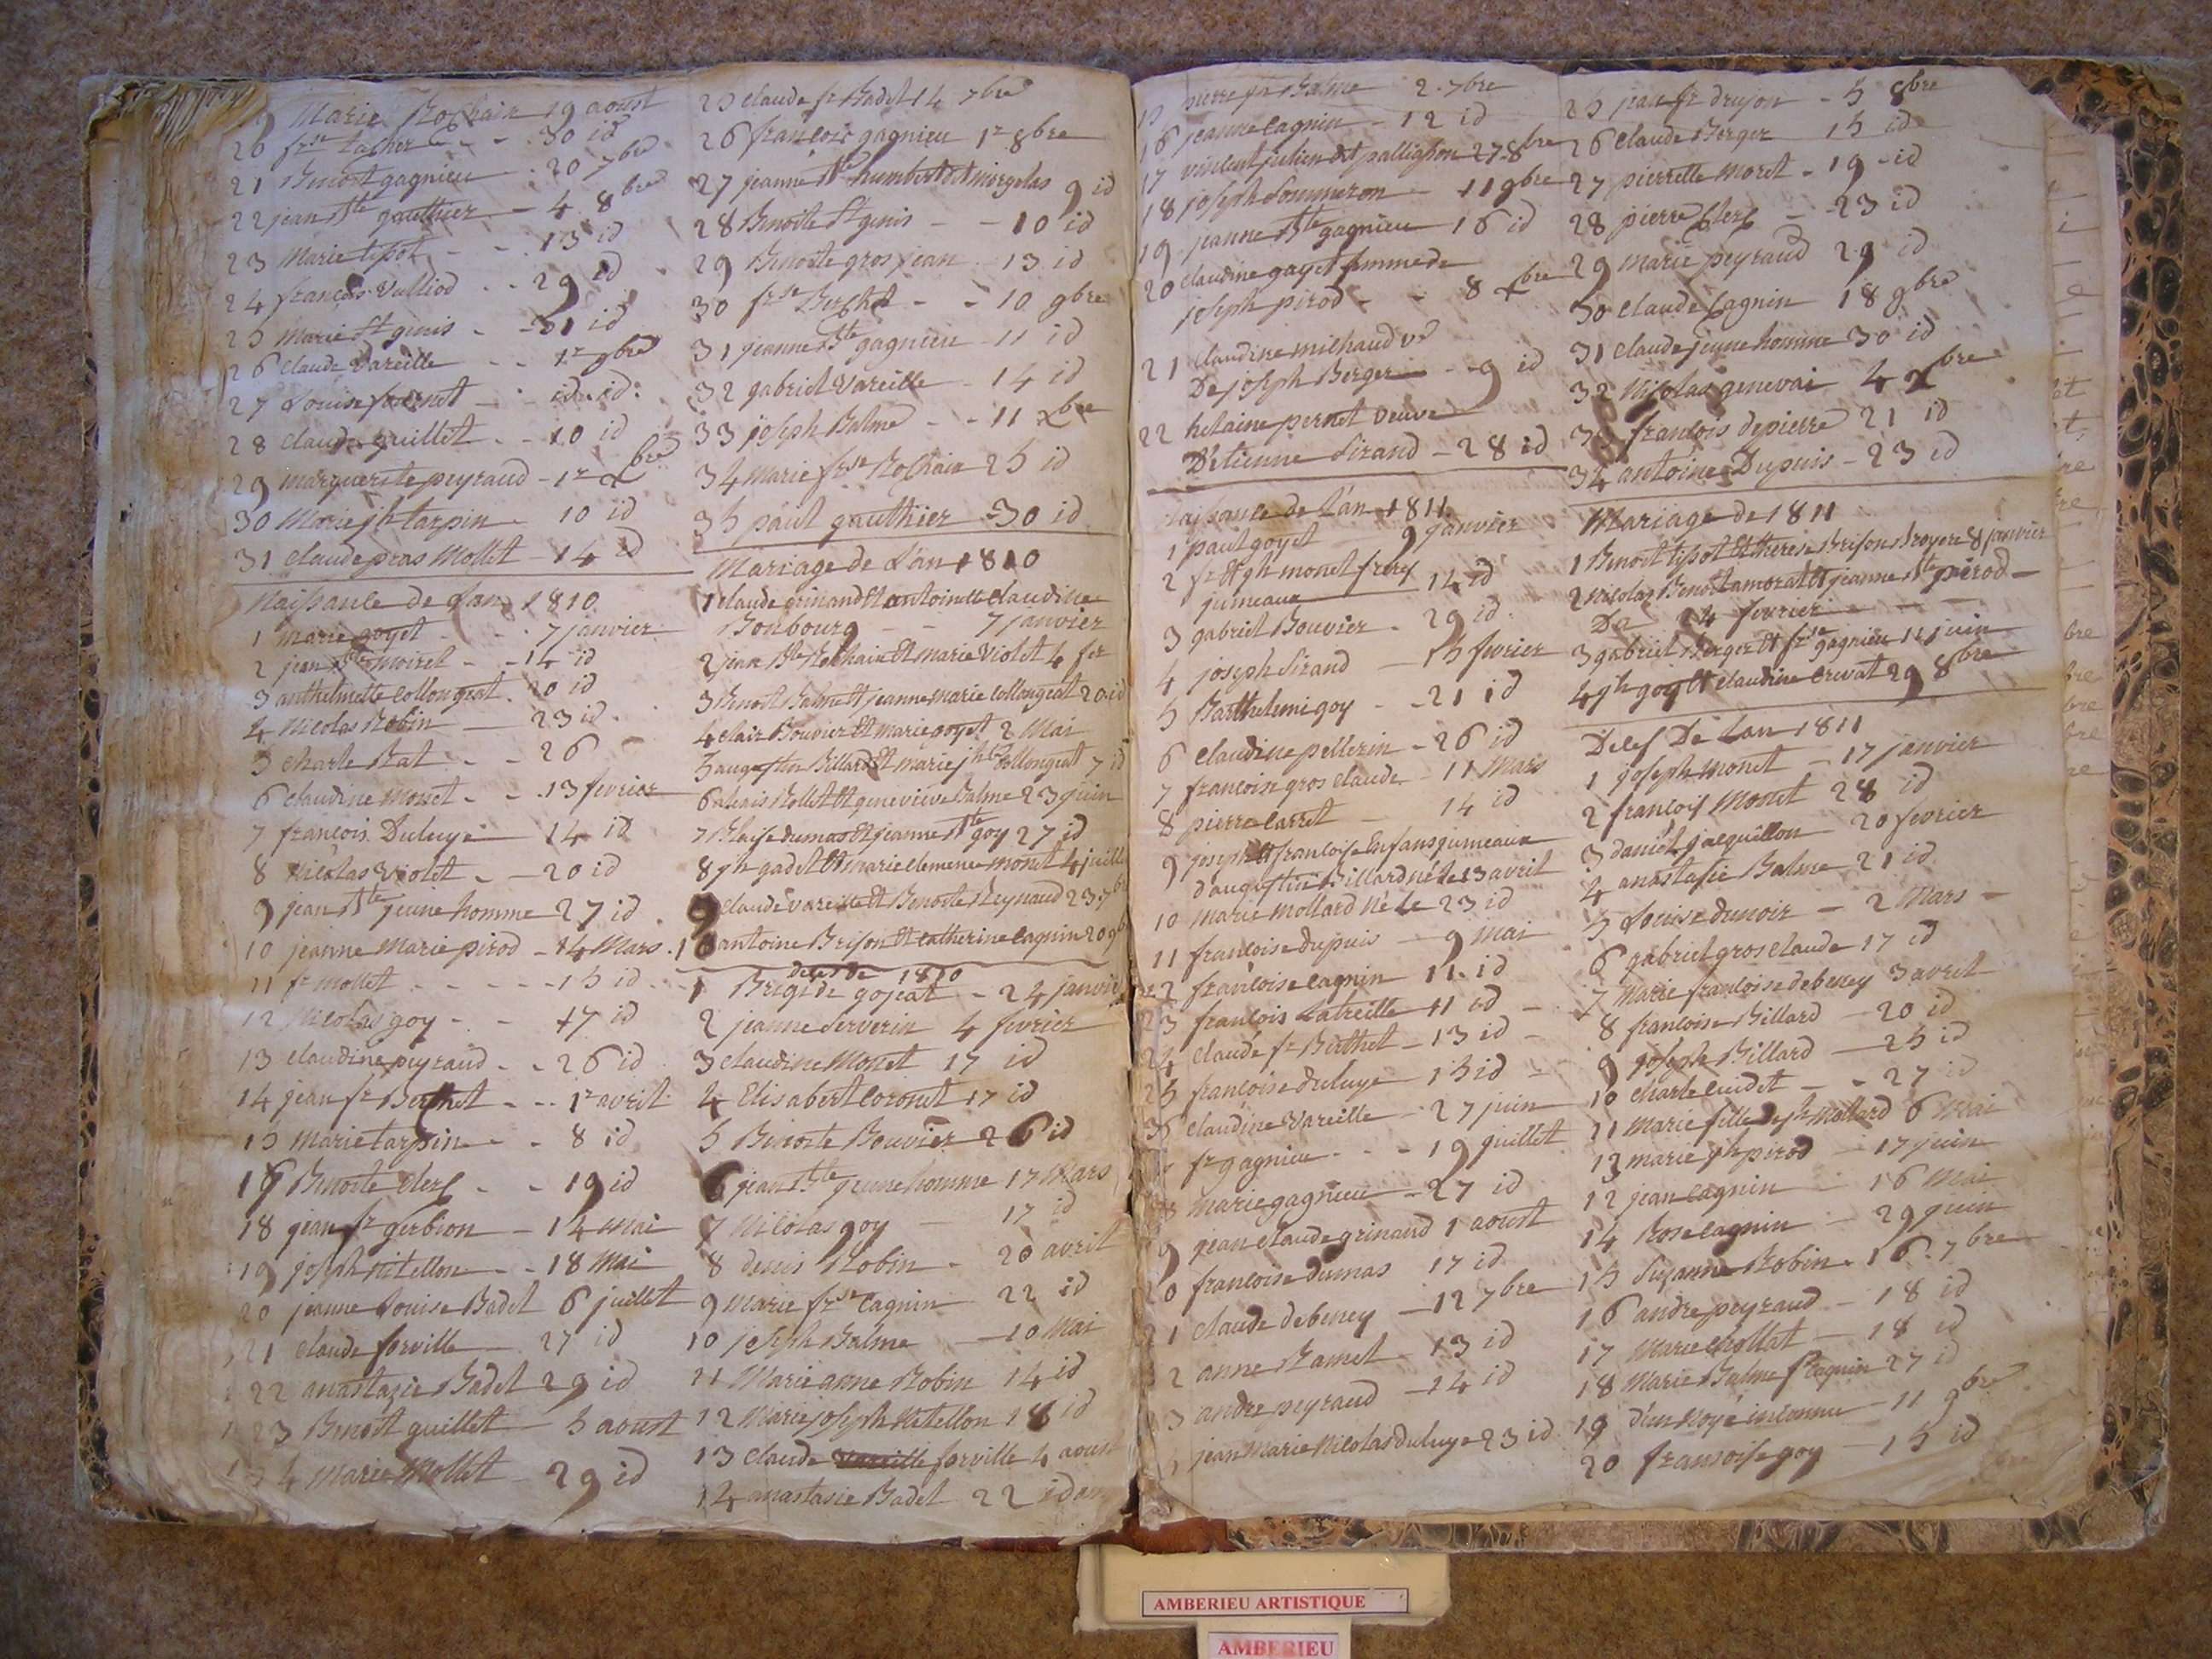 19 Marie Rochaix 19 aoust
20 frse - - 30 id
21 Benoit gagnieu - 20 7bre
22 jean Bte gauthier - 4 8bre
23 Marie tissot - - 13 id
24 françois Vulliod - - 29 id
25 Marie St genis - - 31 id
26 Claude Vareille - - 1r 9bre
27 Louise - id id
28 Claude guillet - - 10 id
29 marguerite peyraud - 1r Xbre
30 Marie jh tarpin - 10 id
31 Claude gras Mollet - 14 id
Naissance de Lan 1810
1 Marie goyet - - 7 janvier
2 jean Bte - - 14 id
3 anthelmette Collongeat - 20 id
4 Nicolas Robin - 23 id
5 Charle Bat - - 26
6 Claudine Monet - - 13 fevrier
7 francois Duluye 14 id
8 Nicolas Violet - - 20 id
9 jean Bte jeune homme 27 id
10 jeanne Marie pirod - 14 Mars
11 fr Mollet - - - - 15 id
12 Nicolas goy - - 17 id
13 Claudine peyraud - - 26 id
14 jean fr Berthet - - 1r avril
15 Marie tarpin - - 8 id
16 Benoite Clerc - - 19 id
18 jean fr gerbion - 14 Mai
19 joseph ritellon - - 18 Mai
20 jeanne Louise Badel 6 juillet
21 Claude forville - 27 id
22 anastazie Badel 29 id
23 Benoit guillet - 5 aoust
24 Marie Mollet - 29 id
25 Claude fr Badel 14 7bre
26 francois gagnieu 1r 8bre
27 jeanne Bte humbert dit 9 id
28 Benoite St genis - - 10 id
29 Benoite gros jean - 13 id
30 frse Berthet - - 10 9bre
31 jeanne Bte gagnieu - 11 id
32 gabriel Vareille - 14 id
33 joseph Balme - - 11 Xbre
34 Marie frse Rochaix 25 id
35 paul gauthier - 30 id
Mariage de L'an 1810
1 Claude grinand Et antoinette Claudine
Bonbourg - - 7 janvier
2 jean Bte Rochaix Et marie Violet 4 fer
3 Benoit Balme Et jeanne marie Collongeat 20 id
4 Clair Bouvier Et Marie goyet 2 Mai
5 augustin Billard Et marie jh Collongeat 7 id
6 Rollet Et genevieve Balme 23 juin
7 Blaise dumas Et jeanne Bte goy 27 id
8 jh gadet Et marie Clemence monet 4 juillet
9 Claude vareille Et Benoite Reynaud 23 7bre
10 antoine Brison Et Catherine Cagnin 20 9bre
deces de 1810
1 Brigide gojeat - 24 janvier
2 jeanne Serverin 4 fevrier
3 Claudine Monet 17 id
4 Elisabert Coronet 17 id
5 Benoite Bouvier 26 id
6 jean Bte jeune homme 17 Mars
7 Nicolas goy - 17 id
8 denis Robin - 20 avril
9 Marie frse Cagnin 22 id
10 joseph Balme - 10 Mai
11 Marie anne Robin 14 id
12 Marie joseph Ritellon 18 id
13 Claude Vareille forville 4 aoust
14 anastasie Badel 22 id
15 pierre fr Balme 2 7bre
16 jeanne Cagnin - 12 id
17 vincent julien dit 27 8bre
18 joseph Sommeron - 11 9bre
19 jeanne Bte gagnieu 16 id
20 Claudine goyet femme de
joseph pirod - - 8 Xbre
21 Claudine milhaud ve
De joseph Berger - - 9 id
22 helaine pernet veuve
D'etienne Sirand - 28 id
Naissance de L'an 1811
1 paul goyet 9 janvier
2 fr Et jh monet freres
jumeaux 14 id
3 gabriel Bouvier - 29 id
4 joseph Sirand - 15 fevrier
5 Barthelemi goy - - 21 id
6 Claudine pellerin - 26 id
7 francoise gros claude - 11 Mars
8 pierre Carret - 14 id
9 joseph Et francoise Enfans jumeaux
d'augustin Billard né le 13 avril
10 marie Mollard né le 23 id
11 francoise dupuis - 9 Mai
12 francoise Cagnin 11 id
13 francois Latreille 11 id
14 Claude fr Berthet - 13 id
15 francoise duluye - 15 id
16 Claudine Vareille - 27 juin
fr gagnieu - - - 19 juillet
18 Marie gagnieu - 27 id
19 jean Claude grinand 1 aoust
20 francoise dumas 17 id
21 Claude debeney - 12 7bre
22 anne Ramel - 13 id
23 andre peyraud - 14 id
jean Marie Nicolas duluye 23 id
25 jean fr drujon - 5 8bre
26 Claude Berger 15 id
27 pierrette Moret - 19 - id
28 pierre Clerc - - 23 id
29 Marie peyraud 29 id
30 Claude Cagnin 18 9bre
31 Claude jeune homme 30 id
32 Nicolas genevai 4 Xbre
33 francois depierre 21 id
34 antoine Dupuis - 23 id
Mariage de 1811
1 Benoit tissot Et therese Brison 8 janvier
2 Nicolas Benoit amorat Et jeanne Bte pirod -
Du 24 fevrier - - -
3 gabriel Berger Et frse gagnieu 11 juin
4 jh goy Et Claudine Crevat 29 8bre
Deces De Lan 1811
1 joseph Monet - 17 janvier
2 francois Monet 28 id
3 daniel jacquillon - 20 fevrier
4 anastasie Balme - 21 id
5 Louise dunoir - 2 Mars -
6 gabriel gros claude - 17 id
7 Marie francoise debeney 3 avril
8 francoise Billard - 20 id
9 joseph Billard - 25 id
10 Charle Cuidet - - 27 id
11 Marie fille de jh Mollard 6 Mai
13 marie jh pirod - 17 juin
12 jean Cagnin - 16 Mai
14 Rose Cagnin - 29 juin
15 Suzanne Robin - 16 7bre
16 andre peyraud - 18 id
17 Marie Chollat - 18 id
18 Marie Balme fe Cagnin 27 id
19 d'un Noyé inconnu - 11 9bre
20 francoise goy - 15 id
AMBERIEU ARTISTIQUE
AMBERIEU